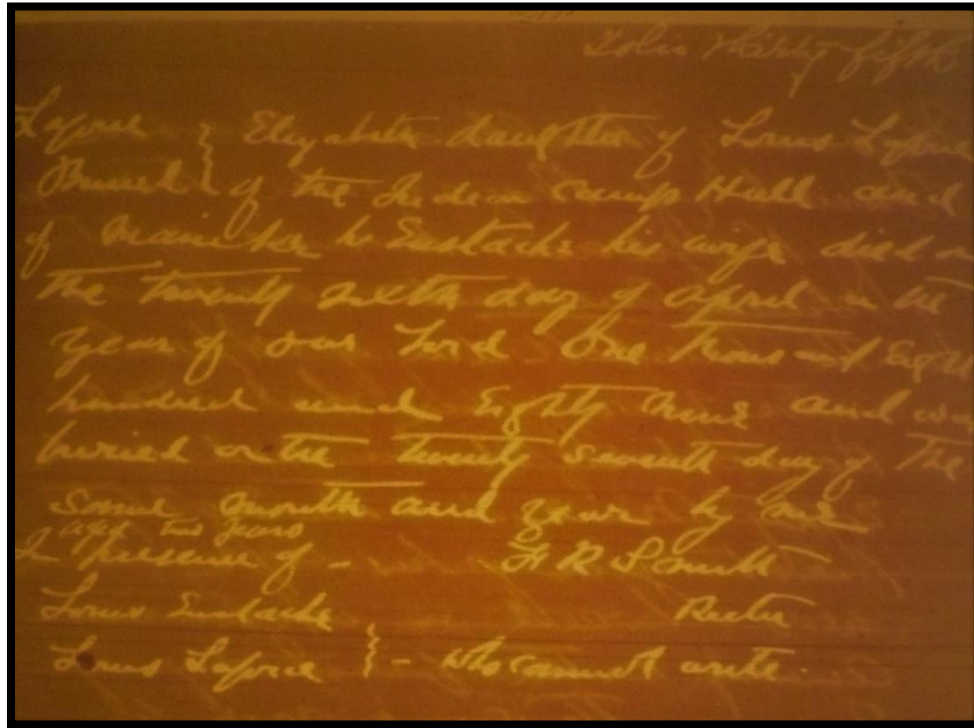 Folio thirty fifth
Laforce } Elizabeth daughter of Louis Laforce
Burial } of the Indian camp Hull and
of his wife died on
the twenty sixth day of April in the
year of our Lord One thousand Eight
hundred and Eighty and was
buried on the twenty seventh day of the
same month and year by me
aged two years
In presence of - F R Smith
Louis Eustache Rector
Louis Laforce } - who cannot write.